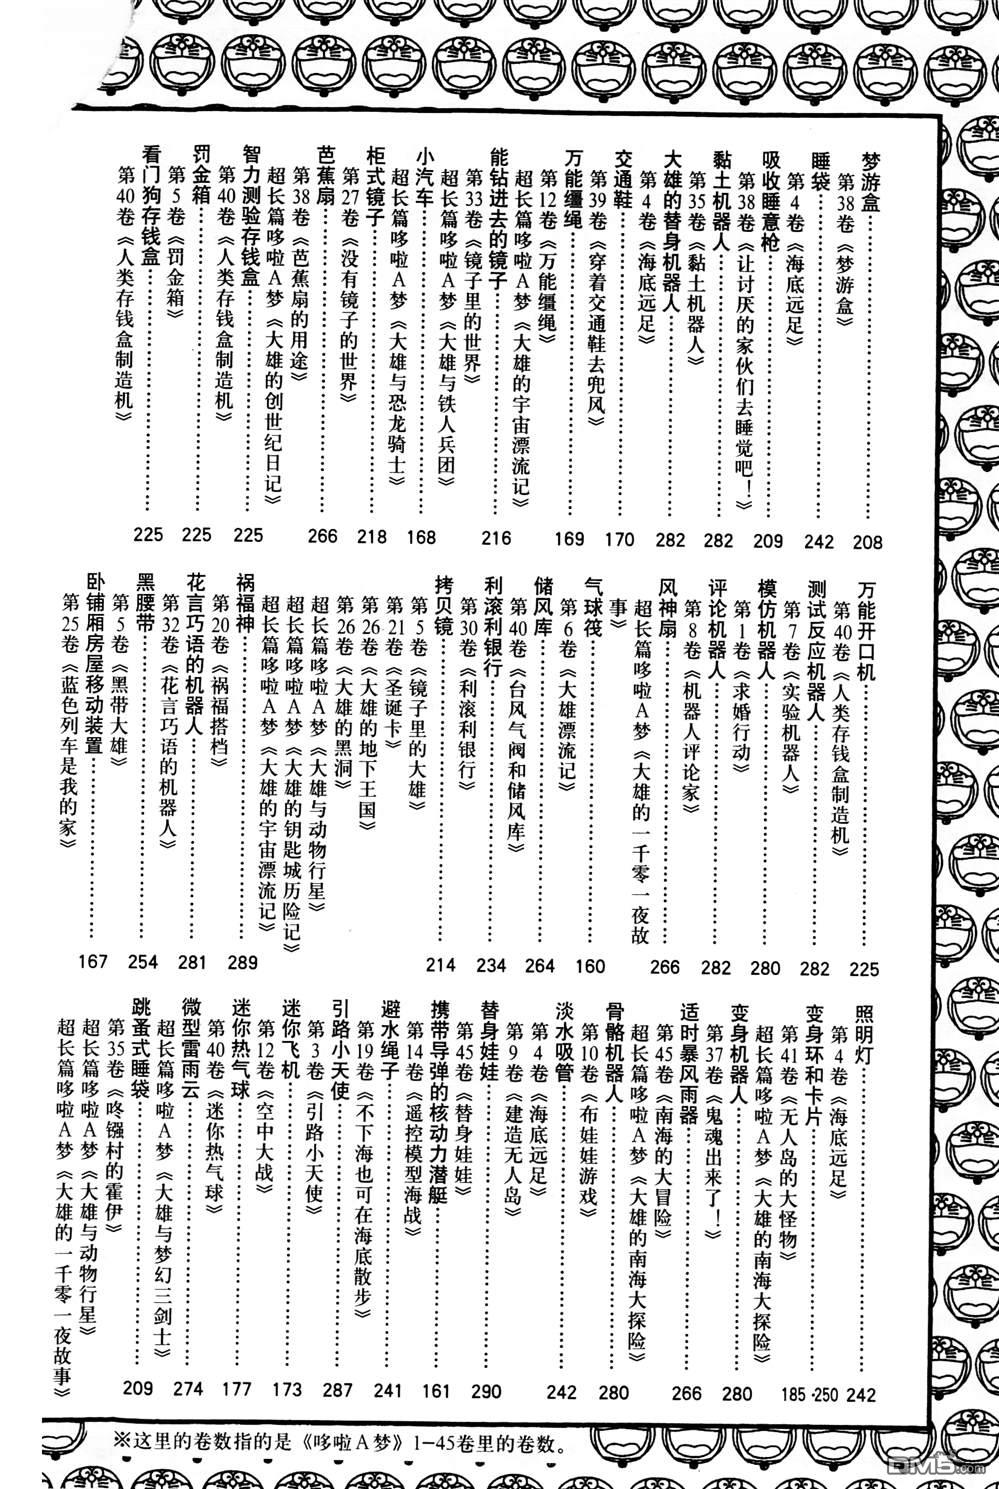 梦游盒……………208
第38卷《梦游盒》
睡袋……………242
第4卷《海底远足》
吸收睡意枪……………209
第38卷《让讨厌的家伙们去睡觉吧！》
黏土机器人……………282
第35卷《黏土机器人》
大雄的替身机器人……………282
第4卷《海底远足》
交通鞋……………170
第39卷《穿着交通鞋去兜风》
万能缰绳……………169
第12卷《万能缰绳》
超长篇哆啦A梦《大雄的宇宙漂流记》
能钻进去的镜子……………216
第33卷《镜子里的世界》
超长篇哆啦A梦《大雄与铁人兵团》
小汽车……………168
超长篇哆啦A梦《大雄与恐龙骑士》
柜式镜子……………218
第27卷《没有镜子的世界》
芭蕉扇……………266
第38卷《芭蕉扇的用途》
超长篇哆啦A梦《大雄的创世纪日记》
智力测验存钱盒……………225
第40卷《人类存钱盒制造机》
罚金箱……………225
第5卷《罚金箱》
看门狗存钱盒……………225
第40卷《人类存钱盒制造机》
万能开口机……………225
第40卷《人类存钱盒制造机》
测试反应机器人……………282
第7卷《实验机器人》
模仿机器人……………280
第1卷《求婚行动》
评论机器人……………282
第8卷《机器人评论家》
风神扇……………266
超长篇哆啦A梦《大雄的一千零一夜故
事》
气球筏……………160
第6卷《大雄漂流记》
储风库……………264
第40卷《台风气阀和储风库》
利滚利银行……………234
第30卷《利滚利银行》
拷贝镜……………214
第5卷《镜子里的大雄》
第21卷《圣诞卡》
第26卷《大雄的地下王国》
第26卷《大雄的黑洞》
超长篇哆啦A梦《大雄与动物行星》
超长篇哆啦A梦《大雄的钥匙城历险记》
超长篇哆啦A梦《大雄的宇宙漂流记》
祸福神……………289
第20卷《祸福搭档》
花言巧语的机器人……………281
第32卷《花言巧语的机器人》
黑腰带……………254
第5卷《黑带大雄》
卧铺厢房屋移动装置……………167
第25卷《蓝色列车是我的家》
照明灯……………242
第4卷《海底远足》
变身环和卡片……………185·250
第41卷《无人岛的大怪物》
超长篇哆啦A梦《大雄的南海大探险》
变身机器人……………280
第37卷《鬼魂出来了！》
适时暴风雨器……………266
第45卷《南海的大冒险》
超长篇哆啦A梦《大雄的南海大探险》
骨骼机器人……………280
第10卷《布娃娃游戏》
淡水吸管……………242
第4卷《海底远足》
第9卷《建造无人岛》
替身娃娃……………290
第45卷《替身娃娃》
携带导弹的核动力潜艇……………161
第14卷《遥控模型海战》
避水绳子……………241
第19卷《不下海也可在海底散步》
引路小天使……………287
第3卷《引路小天使》
迷你飞机……………173
第12卷《空中大战》
迷你热气球……………177
第40卷《迷你热气球》
微型雷雨云……………274
超长篇哆啦A梦《大雄与梦幻三剑士》
跳蚤式睡袋……………209
第35卷《咚锵村的霍伊》
超长篇哆啦A梦《大雄与动物行星》
超长篇哆啦A梦《大雄的一千零一夜故事》
※这里的卷数指的是《哆啦A梦》1-45卷里的卷数。
DM5.com